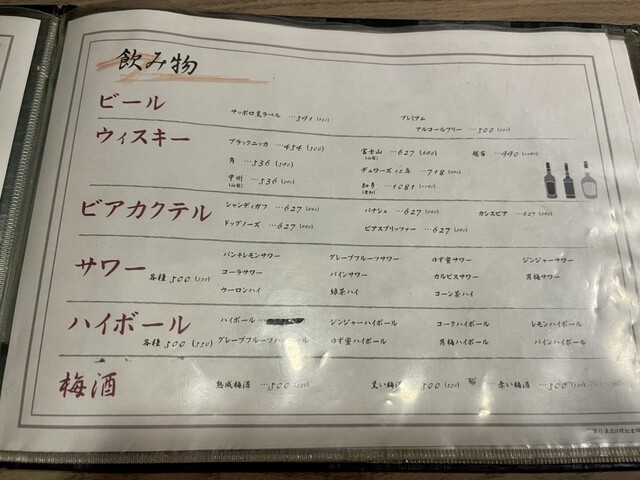 飲み物
ビール
サッポロ黒ラベル …591(650)
プレミアム
アルコールフリー …500(550)
ウィスキー
ブラックニッカ …454(500)
富士山 …627(690)
(山梨)
越百 …990
角 …536(590)
デュワーズ12年 …718
甲州 …536(590)
(山梨)
知多 …1081
(愛知)
ビアカクテル
シャンディガフ …627(690)
パナシェ …627(690)
カシスビア …627(690)
ドッグノーズ …627(690)
ビアスプリッツァー …627(690)
サワー 各種 500(550)
パンチレモンサワー グレープフルーツサワー ゆず蜜サワー ジンジャーサワー
コーラサワー パインサワー カルピスサワー 青梅サワー
ウーロンハイ 緑茶ハイ コーン茶ハイ
ハイボール 各種 500(550)
ハイボール ジンジャーハイボール コークハイボール レモンハイボール
グレープフルーツハイボール ゆず蜜ハイボール 青梅ハイボール パインハイボール
梅酒
熟成梅酒 …500(550)
黒い梅酒 500(550)
赤い梅酒 …500(550)